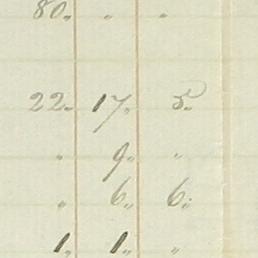 80 " "
22 " 17 " 5 "
" 9 " "
" 6 " 6 "
1 " 1 " "